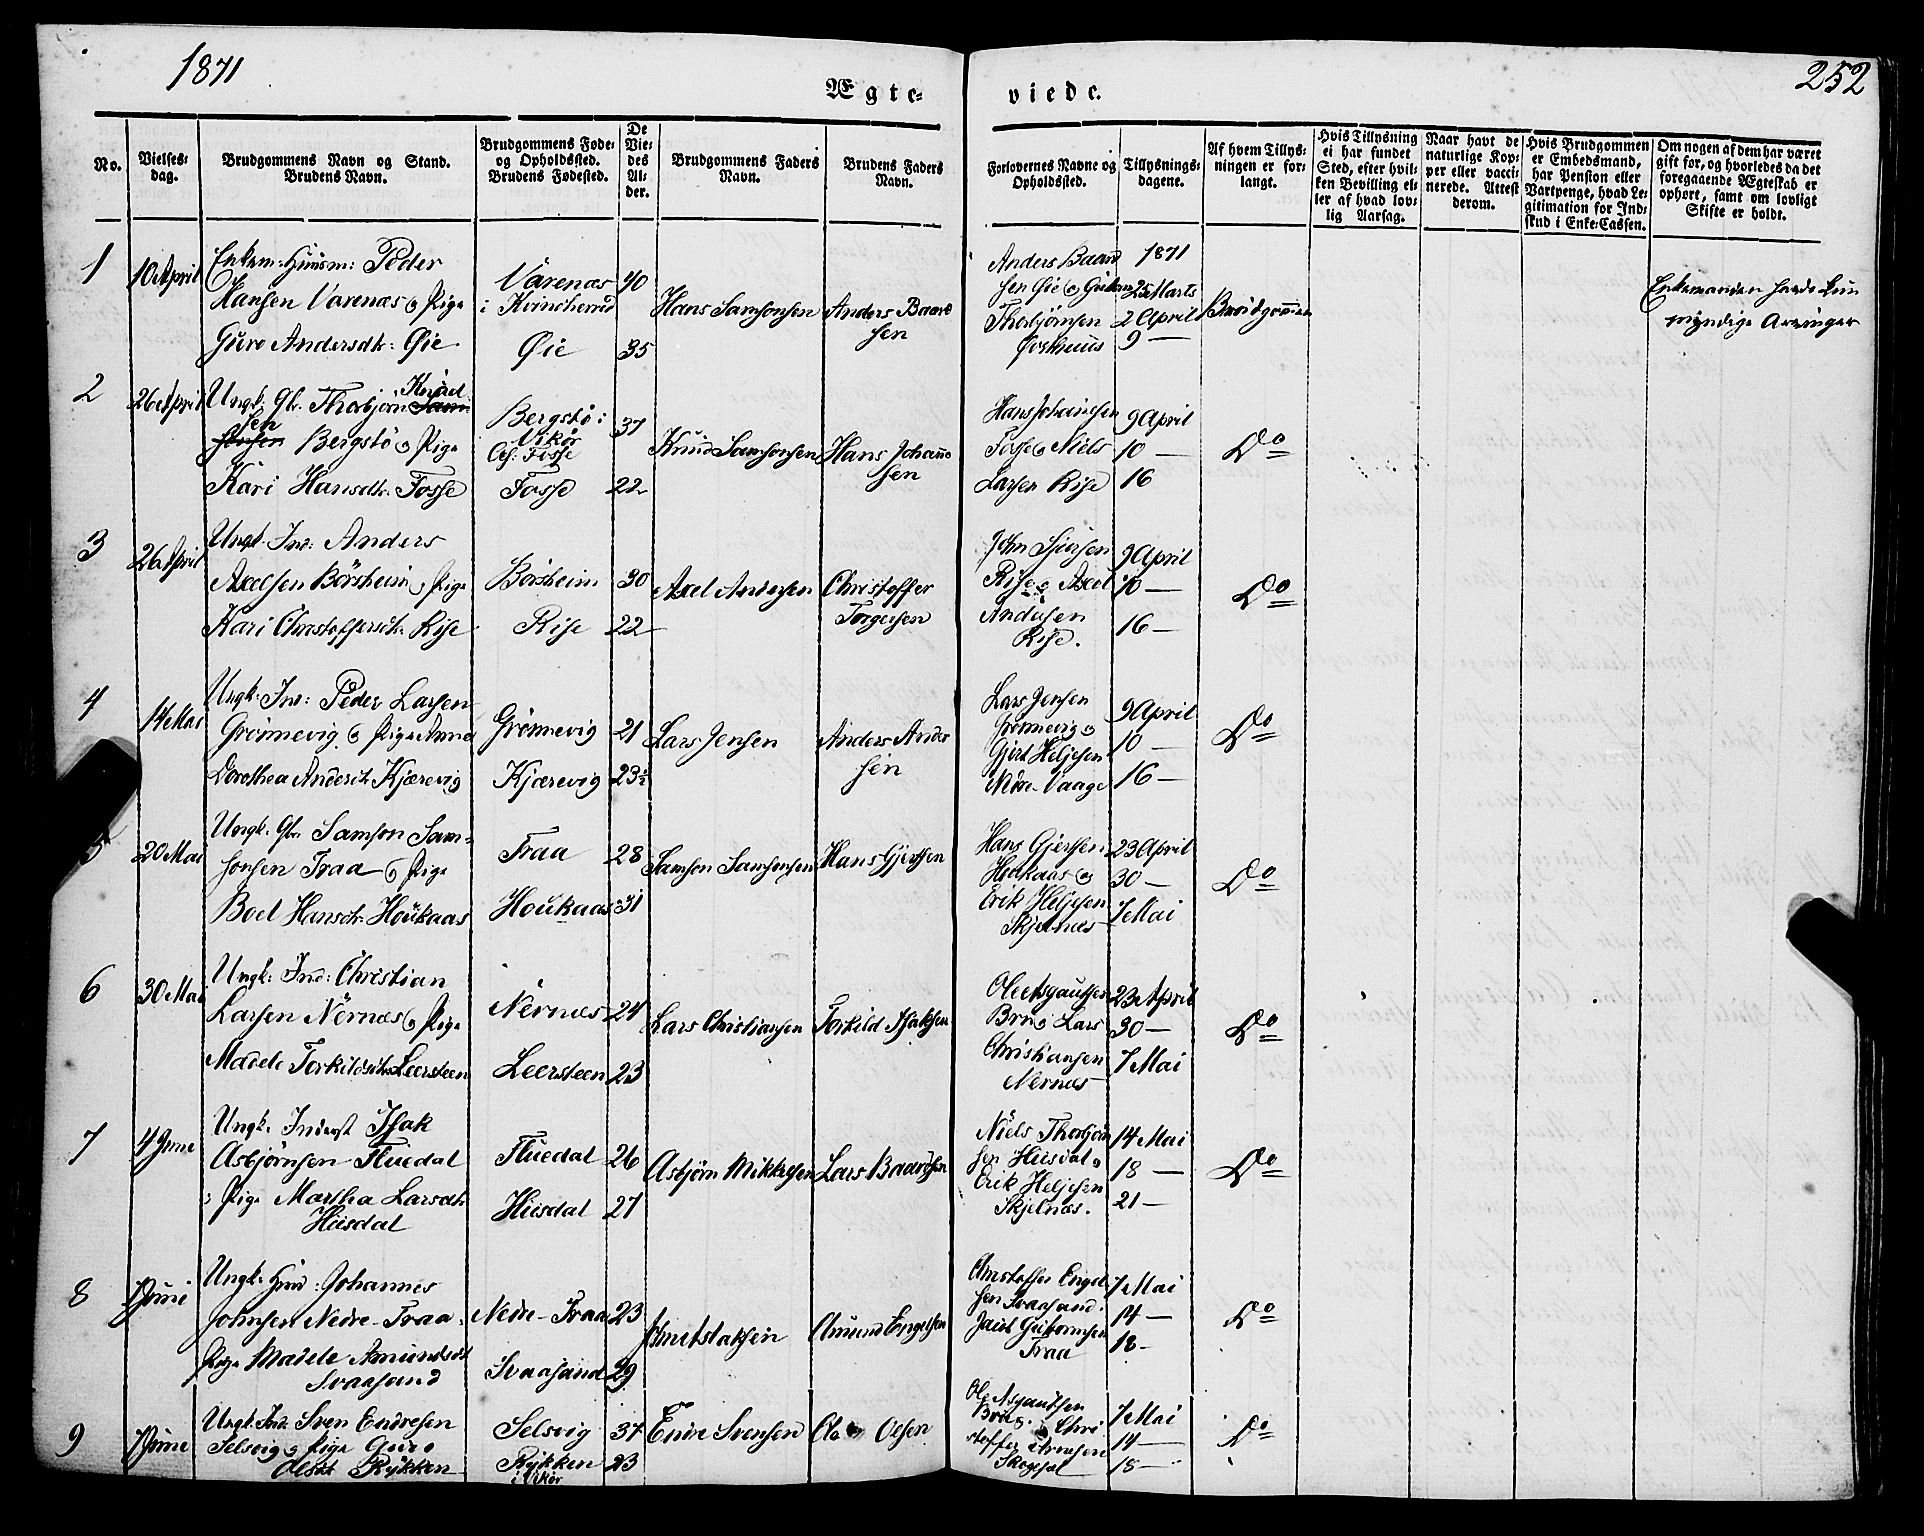 1871
252
Ægte-
viede.
No.
Vielses-
dag.
Brudgommens Navn og Stand.
Brudens Navn.
Brudgommens Føde-
og Opholdssted.
Brudens Fødested.
De
Vie-
des
Al-
der.
Brudgommens Faders
Navn.
Brudens Faders
Navn.
Forlovernes Navne og
Opholdssted.
Tillysnings-
dagene.
Af hvem Tillys-
ningen er for-
langt.
Hvis Tillysning
ei har fundet
Sted, efter hvil-
ken Bevilling el-
ler af hvad lov-
lig Aarsag.
Naar havt de
naturlige Kop-
per eller vacci-
nerede. Attest
derom.
Hvis Brudgommen
er Embedsmand,
har Pension eller
Vartpenge, hvad Le-
gitimation for Ind-
skud i Enke-Cassen.
Om nogen af dem har været
gift for, og hvorledes da det
foregaaende Ægteskab er
ophørt, samt om lovligt
Skifte er holdt.
1
10 April
Enkem: Huusm: Peder
Hansen Varenæs og Pige
Guro Andersdtr: Øie
Varenæs
i Kvinherred
Øie
40
35
Hans Samsonsen
Anders Baard
sen
Anders Baard
sen Øie og
Thorbjørnsen
1871
25 Marts
2 April
9 —
Brudgommen
Enkemanden havde kun
myndige Arvinger
2
26 April
Ungk: Gbr. Thorbjørn Knud
sen
Bergstø og Pige
Kari Hansdtr. Fosse
Bergstø i
Vikør
Fosse
Fosse
37
22
Knud Samsonsen
Hans Johanne
sen
Hans Johannsen
Fosse og Niels
Larsen Rise
9 April
10 —
16
Do
3
26 April
Ungk. Ind: Anders
Axelsen Börsheim og Pige
Kari Christoffersdtr. Rise
Börsheim
Rise
30
22
Axel Andersen
Christoffer
Torgersen
Rise og Axel
Andersen
Rise.
9 April
10 —
16 —
Do
4
14 Mai
Ungk: Ind: Peder Larsen
Grönnevig og Pige Anna
Dorothea Andersdtr. Kjærevig
Grönnevig
Kjærevig
21
23½
Lars Jensen
Anders Ander
sen
Lars Jensen
Grönnevig og
Gjert Heljesen
Nedre Vaage
9 April
10 —
16 —
Do
5
20 Mai
Ungk. Gbr. Samson Sam-
sonsen Traa og Pige
Boel Hansdtr. Houkaas
Traa
Houkaas
28
31
Samson Samsonsen
Hans Gjertsen
Hans Gjertsen
Houkaas og
Erik Heljesen
Skjelnæs
23 April
30 —
7 Mai
Do
6
30 Mai
Ungk: Ind: Christian
Larsen Nernæs og Pige
Madele Torkildsdtr. Leersteen
Nernæs
Leersteen
24
23
Lars Christiansen
Torkild Isaksen
Ole Asgautsen
Bru og Lars
Christiansen
Nernæs
23 April
30 —
7 Mai
Do
7
4 June
Ungk. Inderst Isak
Asbjørnsen Fluedal
og Pige Martha Larsdtr.
Huusdal
Fluedal
Huusdal
26
27
Asbjørn Mikkelsen
Lars Baardsen
Niels Thorbjørn
sen Huusdal og
Erik Heljesen
Skjelnæs.
14 Mai
18 —
21 —
Do
8
7 Juni
Ungk. Huusm: Johannes
Johnsen Nedre-Traa
Pige Madele Amundsdtr
Svaasand
Nedre-Traa
Svaasand
23
29
Amund Engelsen
Christoffer Engel
sen Svaasand.
Traa
7 Mai
14 —
18 —
Do
9
7 June
Ungk. Ind. Sven Endresen
Selsvig og Pige Guro
Olsdtr Rykken
Selsvig
Rykken
i Vikør
37
23
Endre Svensen
Ola Olsen
Ole Asgautsen
Bru og Chri
stoffer Arnesen
7 Mai
14 —
18 —
Do